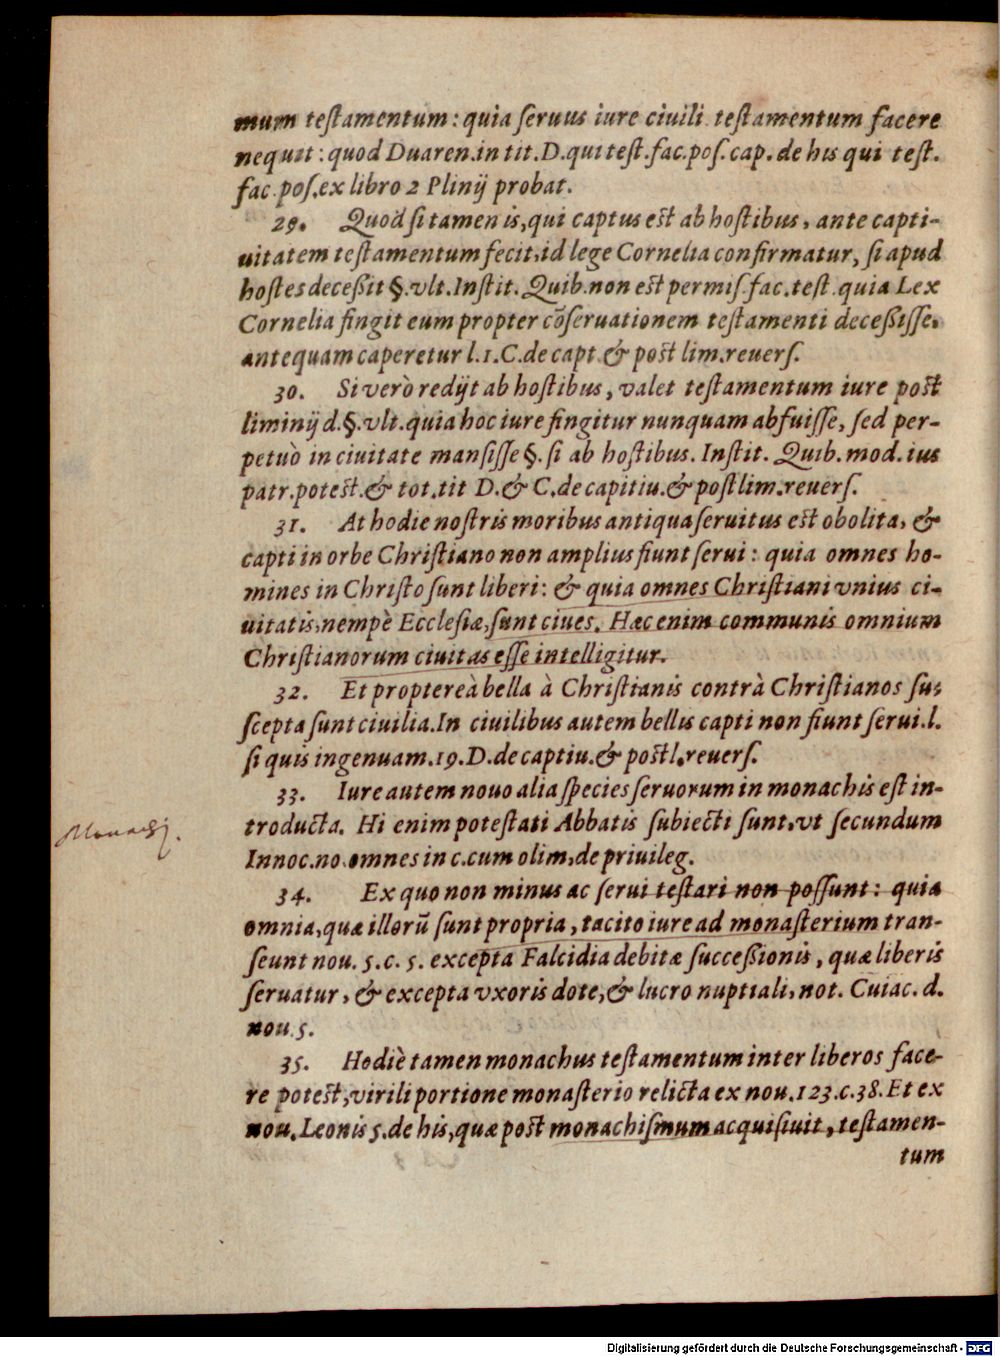 mum testamentum: quia seruus iure ciuili testamentum facere
nequit: quod Duaren. in tit. D. qui test. fac. pos. cap. de his qui test.
fac. pos. ex libro 2 Plinij probat.
29. Quod si tamen is, qui captus est ab hostibus, ante capti-
uitatem testamentum fecit, id lege Cornelia confirmatur, si apud
hostes deceßit §. vlt. Instit. Quib. non est permis. fac. test. quia Lex
Cornelia fingit eum propter cōseruationem testamenti deceßisse,
antequam caperetur l. 1. C. de capt. & post lim. reuers.
30. Si verò redijt ab hostibus, valet testamentum iure post
liminij d. §. vlt. quia hoc iure fingitur nunquam abfuisse, sed per-
petuò in ciuitate mansisse §. si ab hostibus. Instit. Quib. mod. ius
patr. potest. & tot. tit D. & C. de capitiu. & post lim. reuers.
31. At hodie nostris moribus antiqua seruitus est obolita, &
capti in orbe Christiano non amplius fiunt serui: quia omnes ho-
mines in Christo sunt liberi: & quia omnes Christiani vnius ci-
uitatis, nempè Ecclesiæ, sunt ciues. Hæc enim communis omnium
Christianorum ciuitas esse intelligitur.
32. Et proptereà bella à Christianis contrà Christianos su-
scepta sunt ciuilia. In ciuilibus autem bellis capti non fiunt serui. l.
si quis ingenuam. 19. D. de captiu. & post l. reuers.
33. Iure autem nouo alia species seruorum in monachis est in-
troducta. Hi enim potestati Abbatis subiecti sunt, vt secundum
Monachj.
Innoc. no. omnes in c. cum olim, de priuileg.
34. Ex quo non minus ac serui testari non possunt: quia
omnia, quæ illorū sunt propria, tacito iure ad monasterium tran-
seunt nou. 5. c. 5. excepta Falcidia debitæ succeßionis, quæ liberis
seruatur, & excepta vxoris dote, & lucro nuptiali, not. Cuiac. d.
nou. 5.
35. Hodiè tamen monachus testamentum inter liberos face-
re potest, virili portione monasterio relicta ex nou. 123. c. 38. Et ex
nou. Leonis 5. de his, quæ post monachismum acquisiuit, testamen-
tum
Digitalisierung gefördert durch die Deutsche Forschungsgemeinschaft - DFG